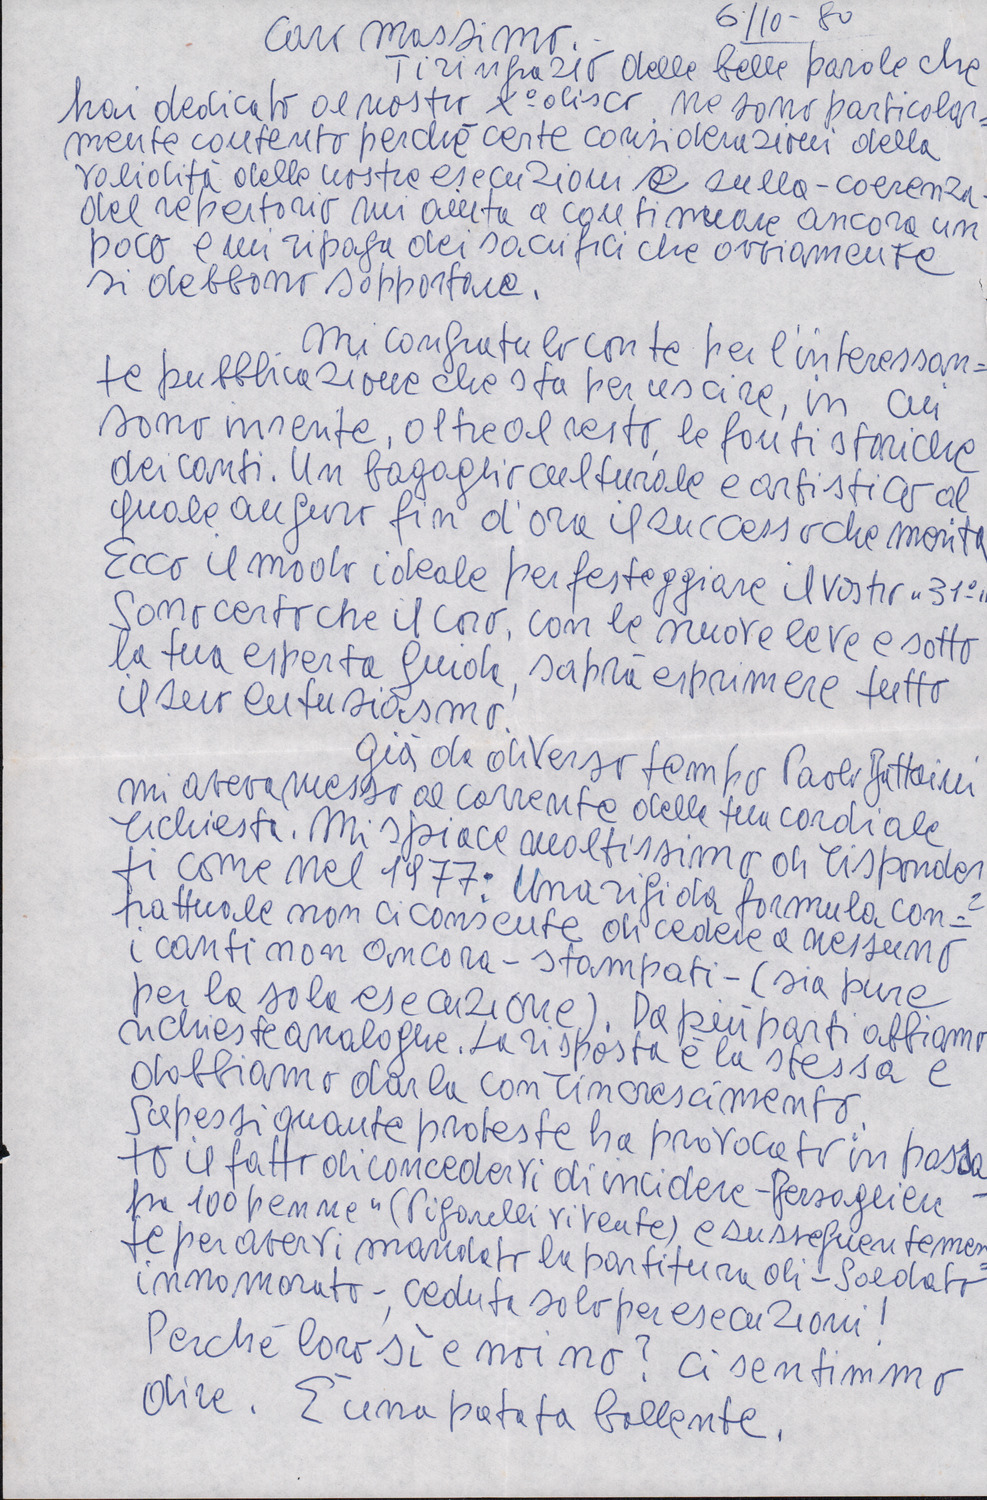 6/10-80
Caro Massimo.-
Ti ringrazio delle belle parole che
hai dedicato al nostro X° disco, ne sono particolar=
mente contento perché certe considerazioni della
validità delle nostre esecuzioni e sulla-coerenza-
del repertorio mi aiuta a continuare ancora un
poco e mi ripaga dei sacrifici che ovviamente
si debbono sopportare.
Mi congratulo con te per l'interessan=
te pubblicazione che sta per uscire, in cui
sono inserite, oltre al resto, le fonti storiche
dei canti. Un bagaglio culturale e artistico al
quale auguro fin d'ora il successo che merita
Ecco il modo ideale per festeggiare il vostro "31°"
Sono certo che il coro, con le nuove leve e sotto
la tua esperta guida, saprà esprimere tutto
il suo entusiasmo.
Già da diverso tempo Paolo Bettaini
mi aveva messo al corrente della tua cordiale
richiesta. Mi spiace moltissimo di risponder
ti come nel 1977: Una rigida formula con=
trattuale non ci consente di cedere a nessuno
i canti non ancora-stampati-(sia pure
per la sola esecuzione). Da più parti abbiamo
richieste analoghe. La risposta è la stessa e
dobbiamo darla con rincrescimento.
Sapessi quante proteste ha provocato in passa
to il fatto di concedervi di incidere-Bersaglier
ha 100 penne" (Pigarelli vivente) e susseguentemen
te per avervi mandato la partitura di-Soldato=
innamorato-, ceduta solo per esecuzioni!
Perché loro sì e noi no? ci sentimmo
dire. È una patata bollente.